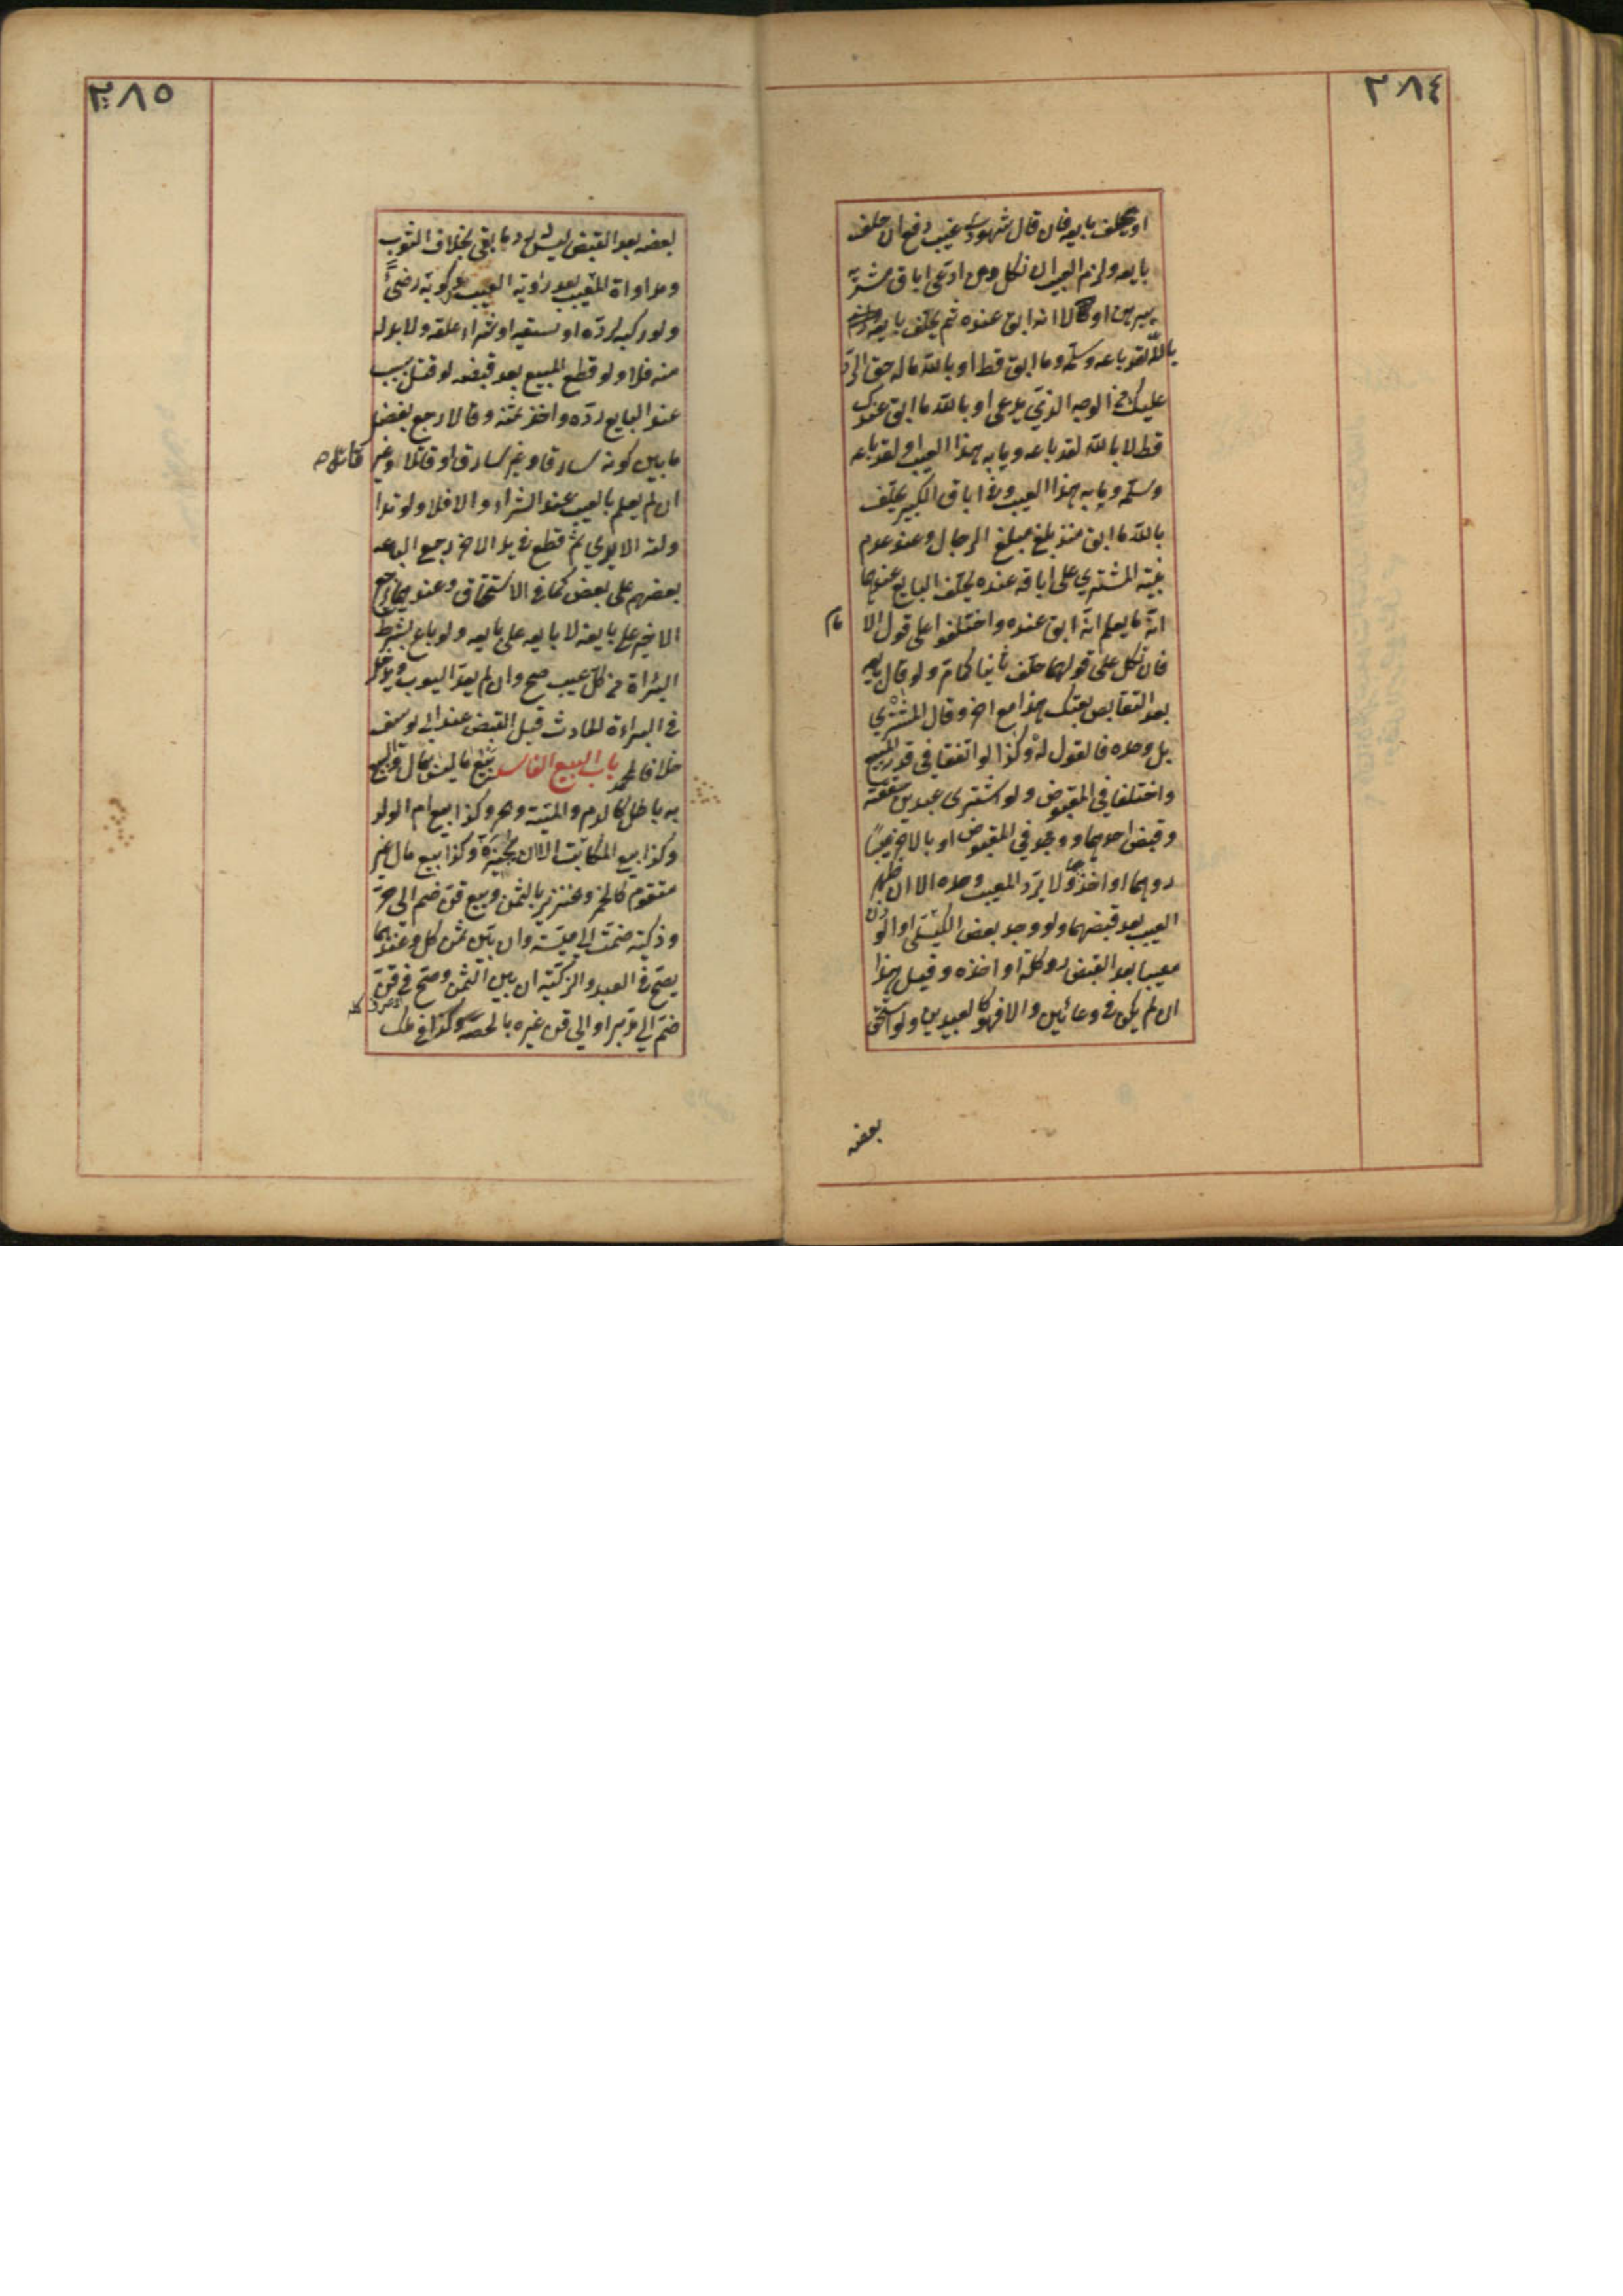 ٣٨٤
او يحلف بايعه فان قال شهودى غيب دفع ان حلف
بايعه ولزم العيب ان نكل ومن ادعى اباق مشتريه
يبرهن اولا انه ابق عنده ثم يحلف بايعه
بالله لقد باعه وسلمه وما ابق قط او بالله ماله حق الرد
عليك من الوجه الذي يدعى او بالله ما ابق عندك
قط لا بالله لقد باعه وما به هذا العيب او لقد باعه
وسلمه وما به هذا العيب وفي اباق الكبير يحلف
بالله ما ابق منذ بلغ مبلغ الرجال وعند عدم
بينة المشتري على اباقه عنده يحلف البايع عندهما
انه ما يعلم انه ابق عنده واختلفوا على قول الا مام
فان نكل على قولهما حلف ثانيا كما مر ولو قال بايعه
بعد التقابض بعتك هذا مع اخر وقال المشتري
بل وحده فالقول له وكذا لو اتفقا في قدر المبيع
واختلفا في المقبوض ولو اشترى عبدين صفقة
وقبض احدهما ووجد في المقبوض او بالاخر عيبا
ردهما او اخذهما ولا يرد المعيب وحده الا ان ظهر
العيب بعد قبضهما ولو وجد بعض الكيلى او الوزن
معيبا بعد القبض رد كله او اخذه وقيل هذا
ان لم يكن في وعائين والا فهو كالعبدين ولو استحق
بعضه
٣٨٥
بعضه بعد القبض ليس له رد ما بقي بخلاف الثوب
ومداواة المعيب بعد رؤية العيب وركوبه رضىً
ولو ركبه لرده او سقيه او شراء علفه ولا بد له
منه فلا ولو قطع المبيع بعد قبضه او قتل بسبب
عند البايع رده واخذ ثمنه وقالا رجع بفضل
ما بين كونه سارقا وغير سارق او قاتلا وغير قاتل صح
ان لم يعلم بالعيب عند الشراء والا فلا ولو تدا
ولته الايدي ثم قطع في يد الاخر رجع الباعه
بعضهم على بعض كما في الاستحقاق وعندهما يرجع
الاخير على بايعه لا بايعه على بايعه ولو باع بشرط
البراة من كل عيب صح وان لم يعد العيوب ويدخل
في البراءة الحادث قبل القبض عند ابي يوسف
خلافا لمحمد باب البيع الفاسد بيع ما ليس بمال والبيع
به باطل كالدم والميتة والحر وكذا بيع ام الولد
وكذا بيع المكاتب الا ان يجيزه وكذا بيع مال غير
متقوم كالخمر والخنزير بالثمن وبيع قن ضم الى حر
وذكية ضمت الى ميتة وان بين ثمن كل وعندهما
يصح في العبد والذكية ان بين الثمن وصح في قن
ضم الى مدبر او الى قن غيره بالحصة وكذا في ملك